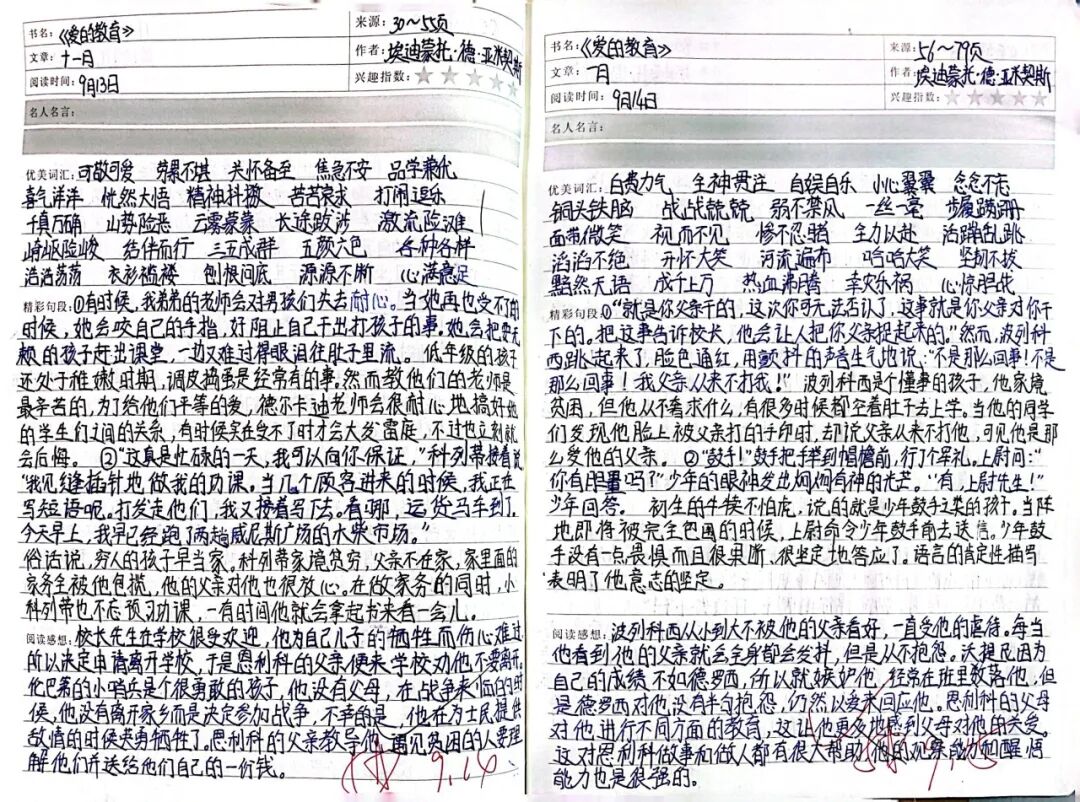 书名:《爱的教育》
来源:30～55页
文章:十一月
作者:埃迪蒙托·德·亚米契斯
阅读时间:9月13日
兴趣指数:
名人名言:
优美词汇:可敬可爱 劳累不堪 关怀备至 焦急不安 品学兼优
喜气洋洋 恍然大悟 精神抖擞 苦苦哀求 打闹逗乐
千真万确 山势险恶 云雾蒙蒙 长途跋涉 激流险滩
崎岖险峻 结伴而行 三五成群 五颜六色 各种各样
浩浩荡荡 衣衫褴褛 刨根问底 源源不断 心满意足
精彩句段:①有时候,我弟弟的老师会对男孩们失去耐心。当她再也受不了的
时候,她会咬自己的手指,好阻止自己干出打孩子的事。她会把耍无
赖的孩子赶出课堂,一边又难过得眼泪往肚子里流。 低年级的孩子
还处于稚嫩时期,调皮捣蛋是经常有的事。然而教他们的老师是
最辛苦的,为了给他们平等的爱,德尔卡迪老师会很耐心地搞好她
的学生们之间的关系,有时候实在受不了时才会大发雷庭,不过也立刻就
会后悔。 ②“这真是忙碌的一天,我可以向你保证,”科列带接着说
“我见缝插针地做我的功课。当几个顾客进来的时候,我正在
写短语呢。打发走他们,我又接着写下去。看哪,运货马车到了。
今天早上,我早已经跑了两趟威尼斯广场的木柴市场。”
俗话说,穷人的孩子早当家。科列带家境贫穷,父亲不在家,家里面的
家务全被他包揽,他的父亲对他也很放心。在做家务的同时,小
科列带也不忘预习功课,一有时间他就会拿起书来看一会儿。
阅读感想:校长先生在学校很受欢迎,他为自己儿子的牺牲而伤心难过
所以决定申请离开学校,于是恩利科的父亲便来学校劝他不要离开。
伦巴第的小哨兵是个很勇敢的孩子,他没有父母,在战争来临的时
候,他没有离开家乡而是决定参加战争,不幸的是,他在为士兵提供
敌情的时候英勇牺牲了。恩利科的父亲教导他,遇见贫困的人要理
解他们并送给他们自己的一份钱。
9.14
书名:《爱的教育》
来源:56～79页
文章:一月
作者:埃迪蒙托·德·亚米契斯
阅读时间:9月14日
兴趣指数:
名人名言:
优美词汇:白费力气 全神贯注 自娱自乐 小心翼翼 念念不忘
铜头铁脑 战战兢兢 弱不禁风 一丝一毫 步履蹒跚
面带微笑 视而不见 惨不忍睹 全力以赴 活蹦乱跳
滔滔不绝 开怀大笑 河流遍布 哈哈大笑 坚韧不拔
黯然失语 成千上万 热血沸腾 幸灾乐祸 心惊胆战
精彩句段:①“就是你父亲干的,这次你可无法否认了,这事就是你父亲对你干
下的。把这事告诉校长,他会让人把你父亲捉起来的。”然而,波列科
西跳起来了,脸色通红,用颤抖的声音生气地说:“不是那么回事!不是
那么回事!我父亲从来不打我!” 波列科西是个懂事的孩子,他家境
贫困,但他从不奢求什么,有很多时候都空着肚子去上学。当他的同学
们发现他脸上被父亲打的手印时,却说父亲从来不打他,可见他是那
么爱他的父亲。 ②“鼓手!”鼓手把手举到帽檐前,行了个军礼。上尉问:“
你有胆量吗?”少年的眼神发出炯炯有神的光芒。“有,上尉先生!”
少年回答。 初生的牛犊不怕虎,说的就是少年鼓手这类的孩子。当阵
地即将被完全包围的时候,上尉命令少年鼓手前去送信。少年鼓
手没有一点畏惧而且很果断、很坚定地答应了。语言的肯定性描写
表明了他意志的坚定。
阅读感想:波列科西从小到大不被他的父亲看好,一直受他的虐待。每当
他看到他的父亲就会全身都会发抖,但是从不抱怨。沃提尼因为
自己的成绩不如德罗西,所以就嫉妒他,经常在班里数落他,但
是德罗西对他没有半句抱怨,仍然以爱来回应他。恩利科的父母
对他进行不同方面的教育,这让他更及地感到父母对他的关爱。
这对恩利科做事和做人都有很大帮助,他的观察能力和醒悟
能力也是很强的。